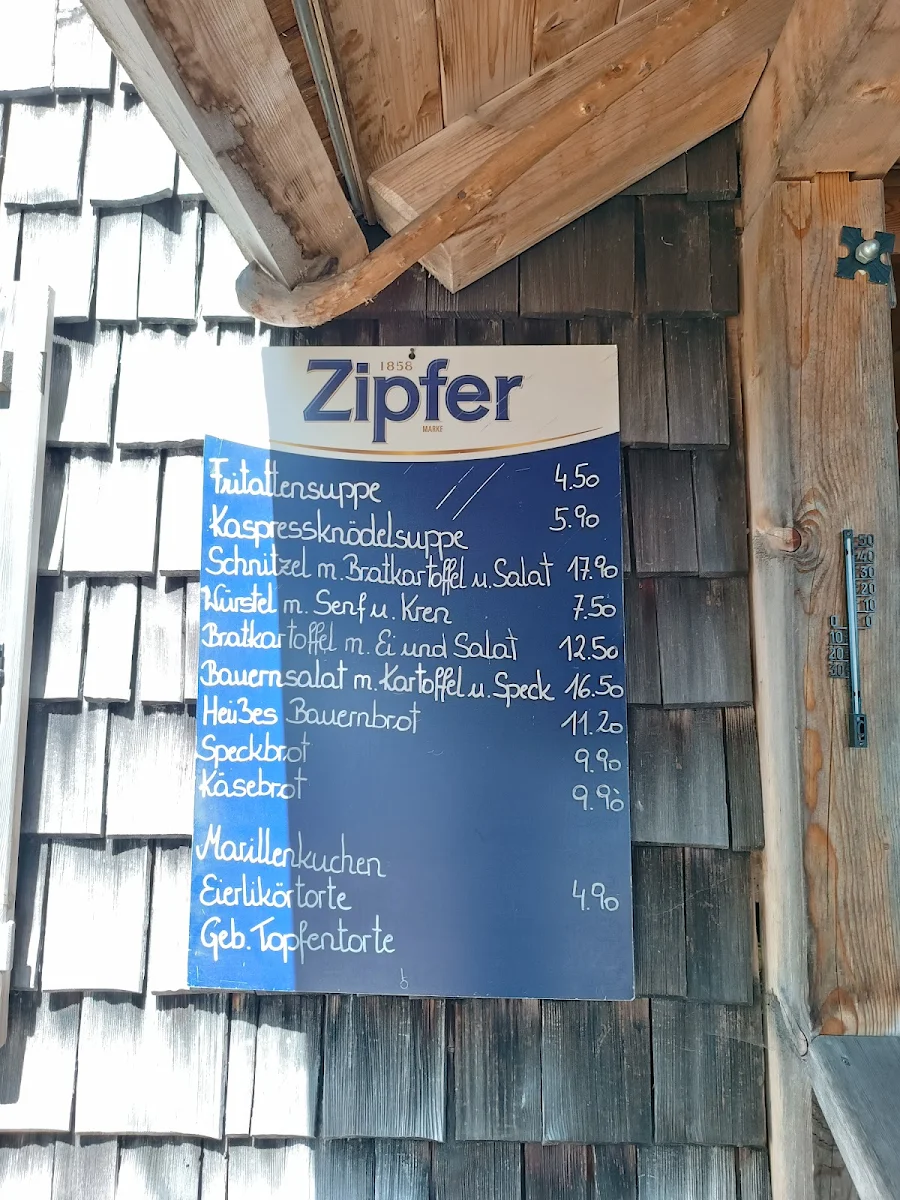 1858
Zipfer
MARKE
Fritattensuppe 4.50
Kaspressknödelsuppe 5.90
Schnitzel m. Bratkartoffel u. Salat 17.90
Würstel m. Senf u. Kren 7.50
Bratkartoffel m. Ei und Salat 12.50
Bauernsalat m. Kartoffel u. Speck 16.50
Heißes Bauernbrot 11.20
Speckbrot 9.90
Käsebrot 9.90
Marillenkuchen
Eierlikörtorte 4.90
Geb. Topfentorte
50
40
30
20
10
0
0
10
20
30